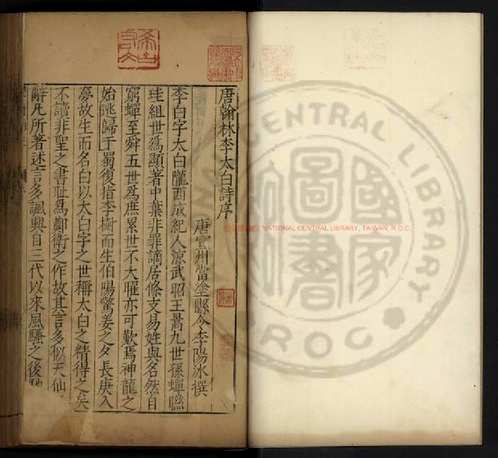 唐翰林李太白詩序
唐宣州當塗縣令李陽冰撰
李白字太白隴西成紀人涼武昭王暠九世孫蟬聯
珪組世爲顯著中葉非罪謫居條支易姓與名然自
窮蟬至舜五世爲庶累世不大曜亦可歎焉神龍之
始逃歸于蜀復指李樹而生伯陽驚姜之夕長庚入
夢故生而名白以太白字之世稱太白之精得之矣
不讀非聖之書恥爲鄭衛之作故其言多似天仙
辭凡所著述言多諷興自三代以來風騷之後
NATIONAL CENTRAL LIBRARY, TAIWAN, R.O.C.
CENTRAL LIBRARY
ROC
國家圖